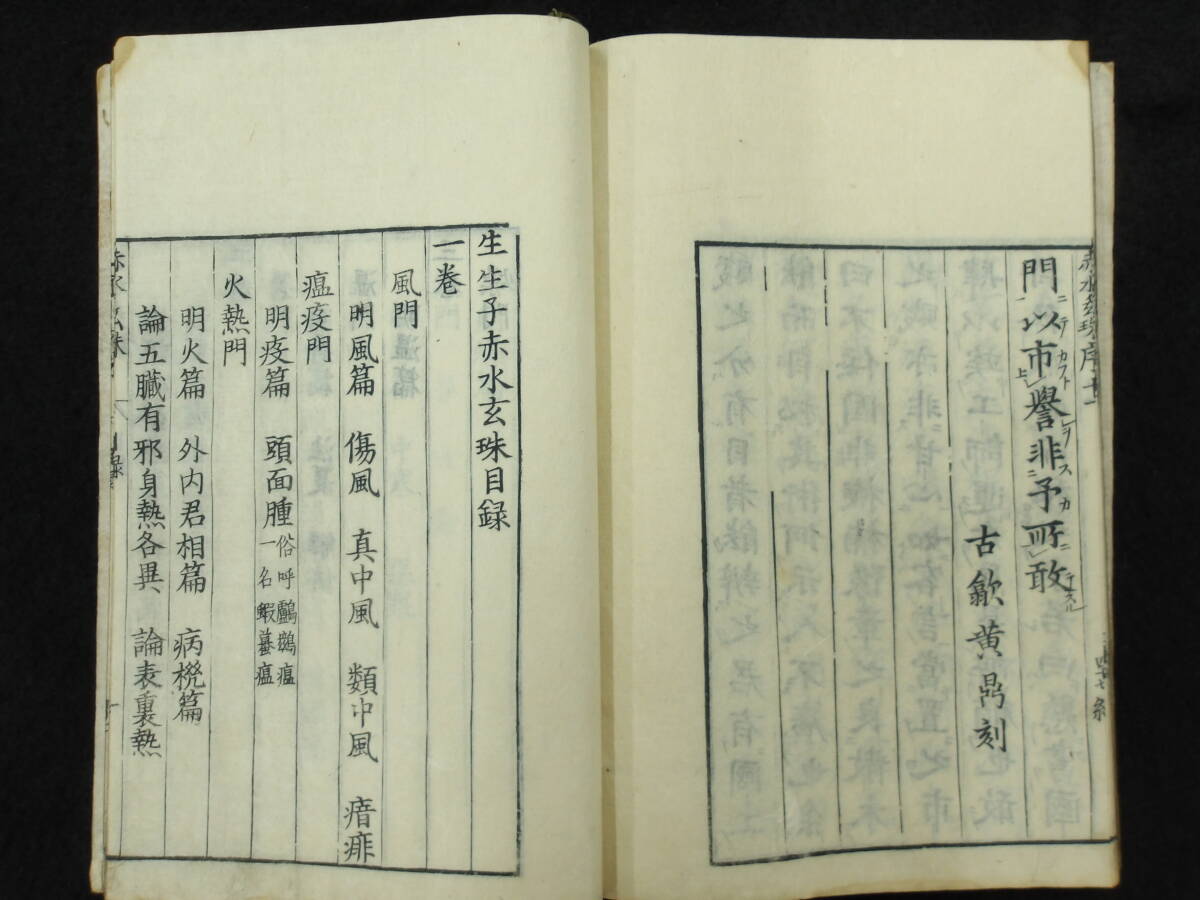 門以市譽非予所敢
古歙黄鼎刻
生生子赤水玄珠目録
一卷
風門
明風篇 傷風 真中風 類中風 瘖痱
瘟疫門
明疫篇 頭面腫 俗呼鸕鷀瘟 一名蝦蟇瘟
火熱門
明火篇 外内君相篇 病機篇
論五臓有邪身熱各異 論表裏熱